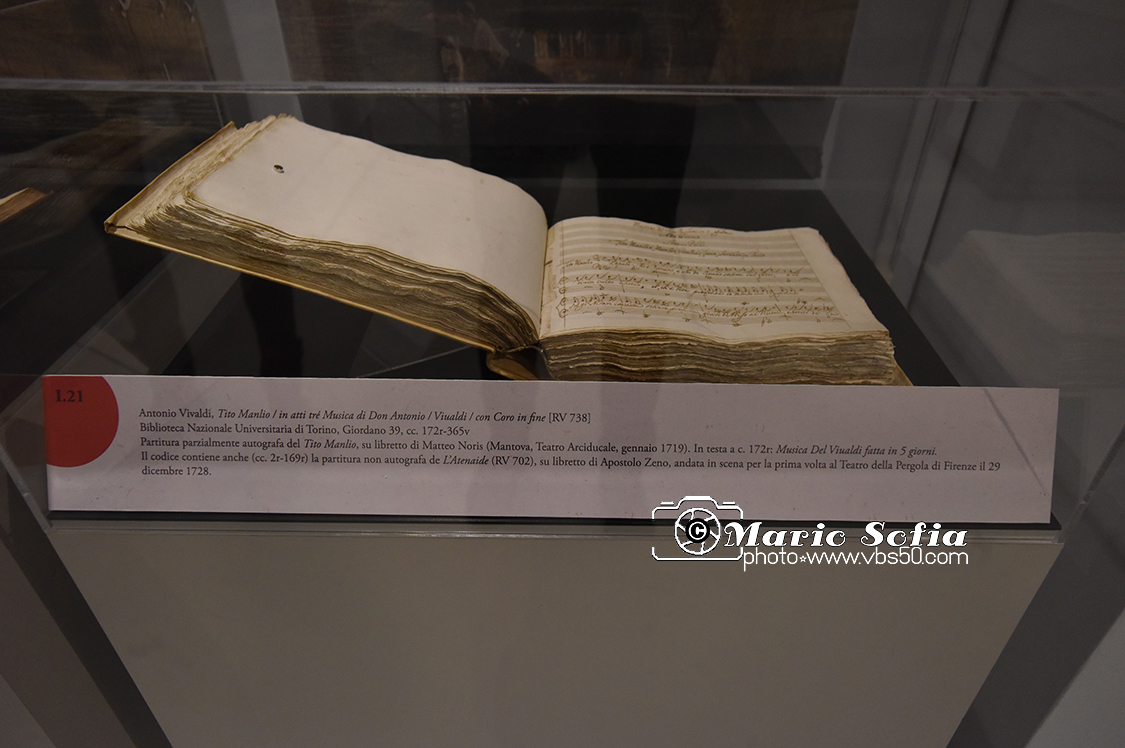 I.21
Antonio Vivaldi, Tito Manlio / in atti tré Musica di Don Antonio / Viualdi / con Coro in fine [RV 738]
Biblioteca Nazionale Universitaria di Torino, Giordano 39, cc. 172r-365v
Partitura parzialmente autografa del Tito Manlio, su libretto di Matteo Noris (Mantova, Teatro Arciducale, gennaio 1719). In testa a c. 172r: Musica Del Viualdi fatta in 5 giorni.
Il codice contiene anche (cc. 2r-169r) la partitura non autografa de L'Atenaide (RV 702), su libretto di Apostolo Zeno, andata in scena per la prima volta al Teatro della Pergola di Firenze il 29
dicembre 1728.
© Mario Sofia
photo☆www.vbs50.com